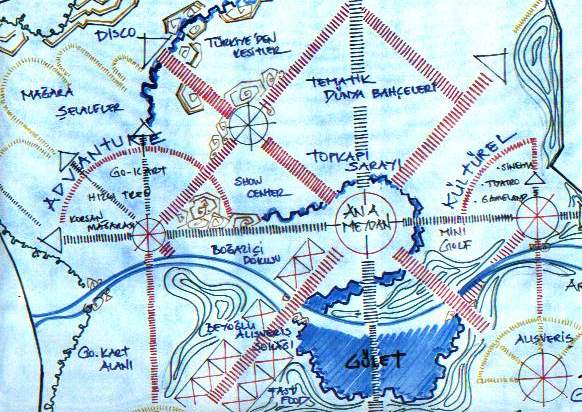 DISCO
TÜRKİYE'DEN
KESİTLER
MAĞARA
ŞELALELER
TEMATİK
DÜNYA BAHÇELERİ
ADVANTURE
GO-KART
KORSAN
MAĞARASI
SHOW
CENTER
TOPKAPI
SARAYI
KÜLTÜREL
SİNEMA
TİYATRO
GAMELAND
ANA
MEYDAN
MİNİ
GOLF
BOĞAZİÇİ
DOKUSU
BEYOĞLU
ALIŞVERİŞ
SOKAĞI
GO-KART
ALANI
GÖLET
FAST
FOOD
ALIŞVERİŞ